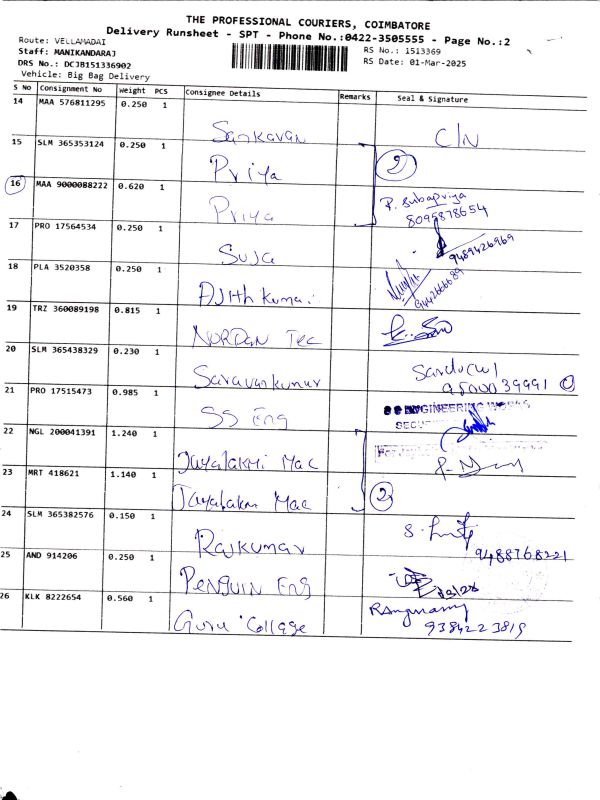 THE PROFESSIONAL COURIERS, COIMBATORE
Delivery Runsheet - SPT - Phone No.:0422-3505555 - Page No.:2
Route: VELLAMADAI
Staff: MANIKANDARAJ
RS No.: 1513369
DRS No.: DCJB151336902
RS Date: 01-Mar-2025
Vehicle: Big Bag Delivery
S No Consignment No Weight PCS Consignee Details Remarks Seal & Signature
14 MAA 576811295 0.250 1 Sankavan C/N
15 SLM 365353124 0.250 1 Priya 2
16 MAA 9000088222 0.620 1 Priya P. Subapriya
8095878654
17 PRO 17564534 0.250 1 Suja 9489426969
18 PLA 3520358 0.250 1 Ajith Kumar 9442666689
19 TRZ 360089198 0.815 1 NORDAN Tec
20 SLM 365438329 0.230 1 Saravankumar
9500039991
21 PRO 17515473 0.985 1 SS Eng ENGINEERING WORKS
22 NGL 200041391 1.240 1 Jayalakmi Mac
23 MRT 418621 1.140 1 Jayalakm Mac 2
24 SLM 365382576 0.150 1 Rajkumar
9488768221
25 AND 914206 0.250 1 Penguin Eng
26 KLK 8222654 0.560 1 Guru College
9384223819